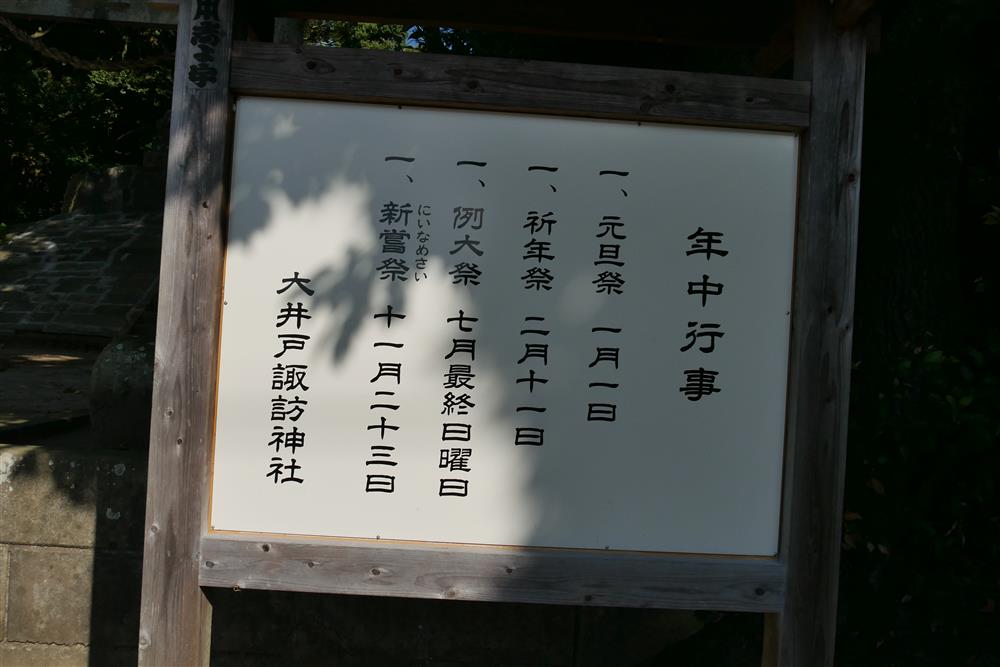 年中行事
一、元旦祭 一月一日
一、祈年祭 二月十一日
一、例大祭 七月最終日曜日
一、新嘗祭 十一月二十三日
にいなめさい
大井戸諏訪神社